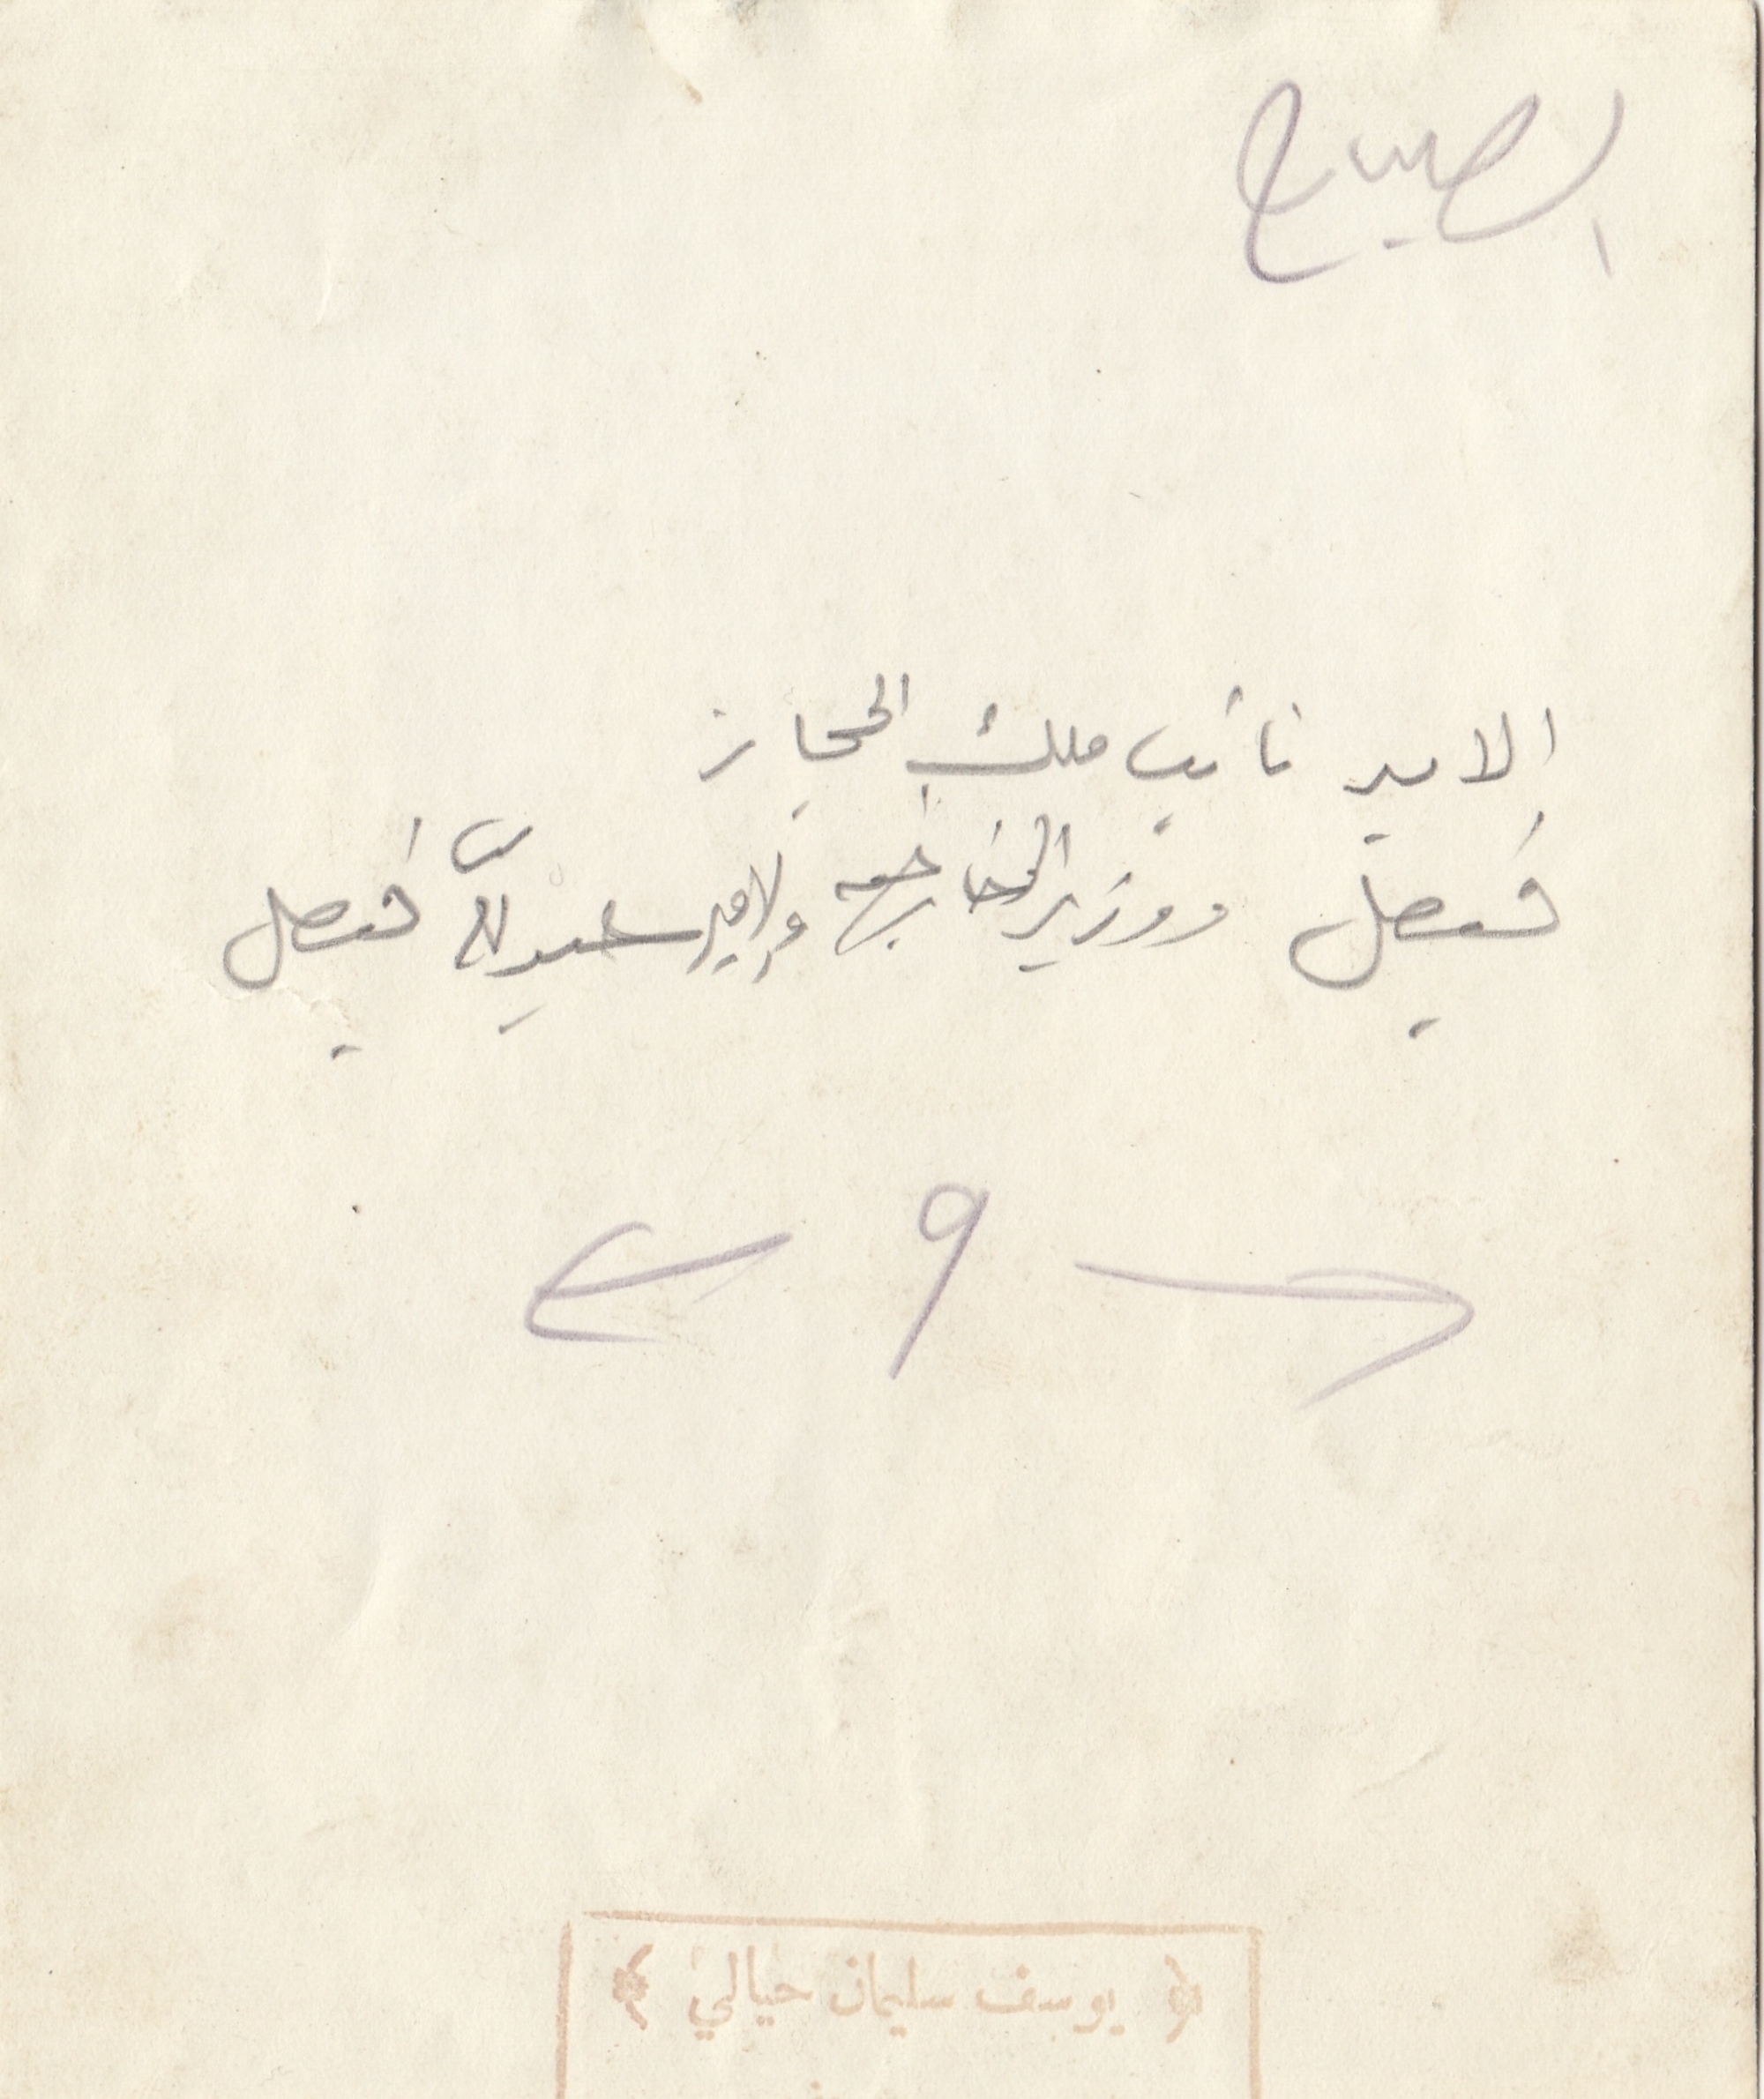 الامير نائب ملك الحجاز
فيصل ووزير الخارجيه والامير عبد الله فيصل
9
يوسف سليمان حيالي